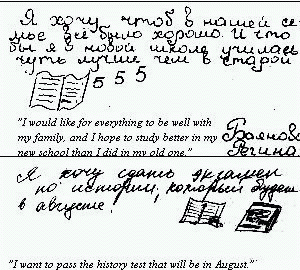 Я хочу чтоб в нашей се-
мье всё было хорошо. И что
бы я в новой школе училась
чуть лучше чем в старой
5 5 5
"I would like for everything to be well with
my family, and I hope to study better in my
new school than I did in my old one."
Баянова
Регина.
Я хочу сдать экзамен
по истории, который будет
в августе.
"I want to pass the history test that will be in August."